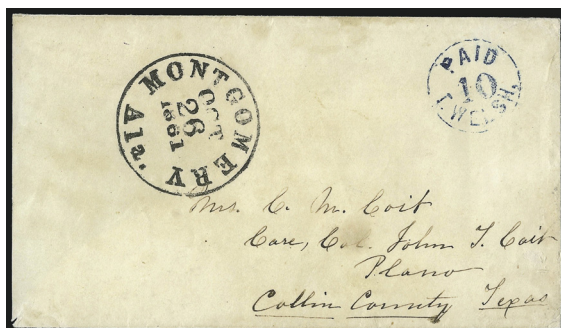 MONTGOMERY Ala.
OCT
26
1861
PAID
10
T. WELSH.
Mrs. C. M. Coit
Care, Col. John T. Coit
Plano
Collin County Texas